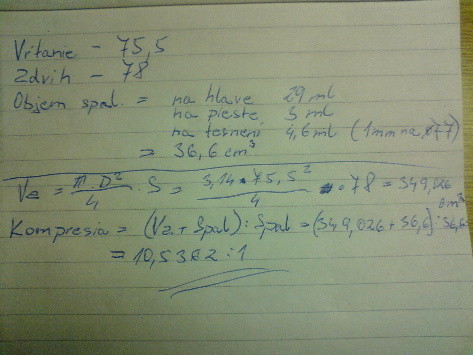 Vŕtanie - 75,5
Zdvih - 78
Objem spal. = na hlave 29 ml
na pieste 3 ml
na tesnení 4,6 ml (1mm na 77)
= 36,6 cm³
Vz = π.D²/4 . S = 3,14 . 75,5²/4 . 78 = 349,026 cm³
Kompresia = (Vz + Spal) : Spal = (349,026 + 36,6) : 36,6
= 10,5362 : 1